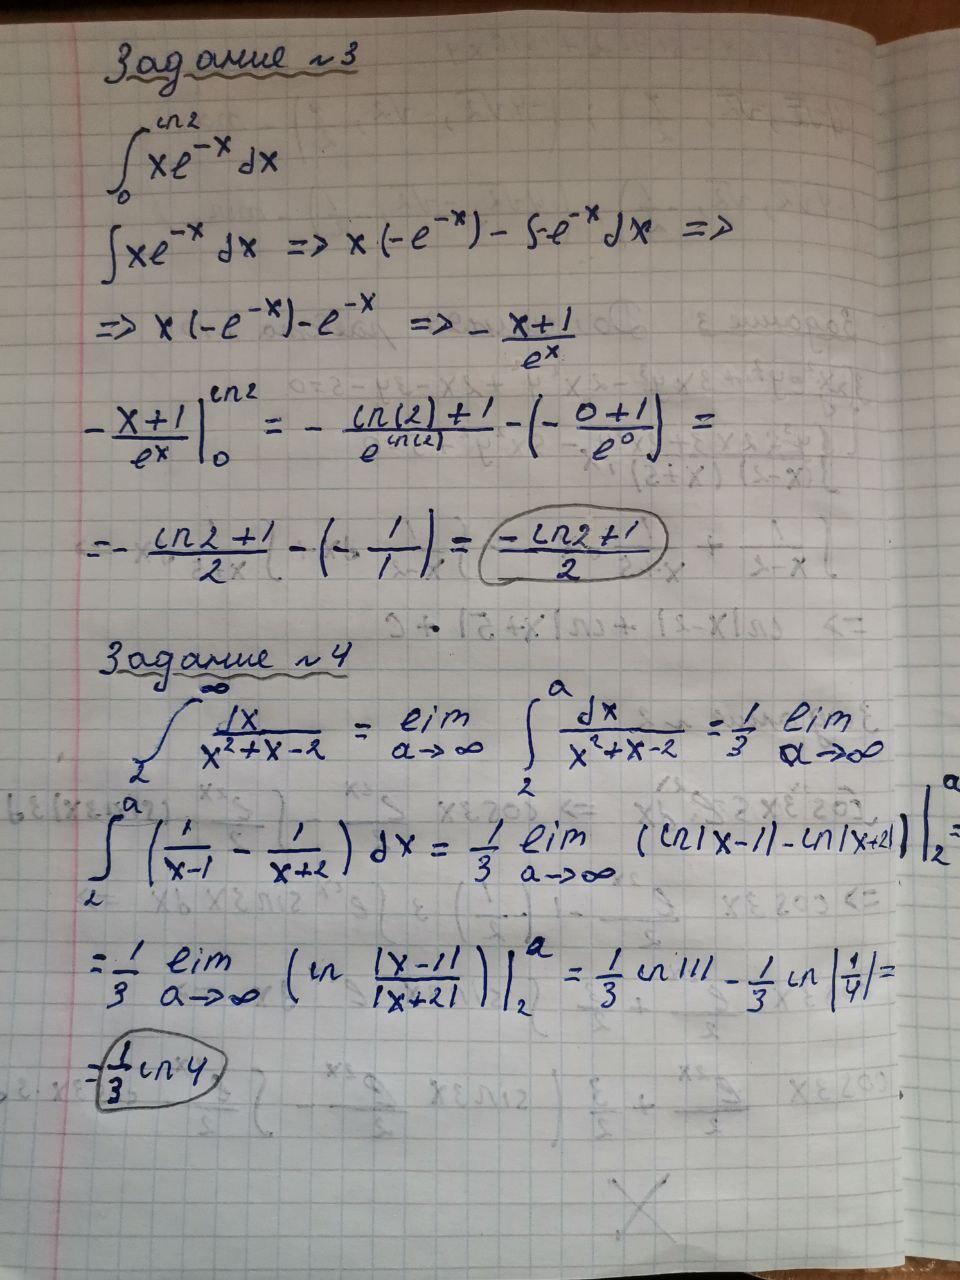 Задание №3
∫₀^{ln2} xe^{-x} dx
∫xe^{-x} dx => x(-e^{-x}) - ∫-e^{-x} dx =>
=> x(-e^{-x}) - e^{-x} => - (x+1)/e^x
- (x+1)/e^x |₀^{ln2} = - (ln(2)+1)/e^{ln(2)} - (- (0+1)/e^0) =
= - (ln2+1)/2 - (- 1/1) = (-ln2+1)/2
Задание №4
∫₂^∞ dx/(x²+x-2) = lim_{a→∞} ∫₂^a dx/(x²+x-2) = 1/3 lim_{a→∞}
∫₂^a (1/(x-1) - 1/(x+2)) dx = 1/3 lim_{a→∞} (ln|x-1| - ln|x+2|) |₂^a =
= 1/3 lim_{a→∞} (ln |x-1|/|x+2|) |₂^a = 1/3 ln|1| - 1/3 ln|1/4| =
= 1/3 ln4